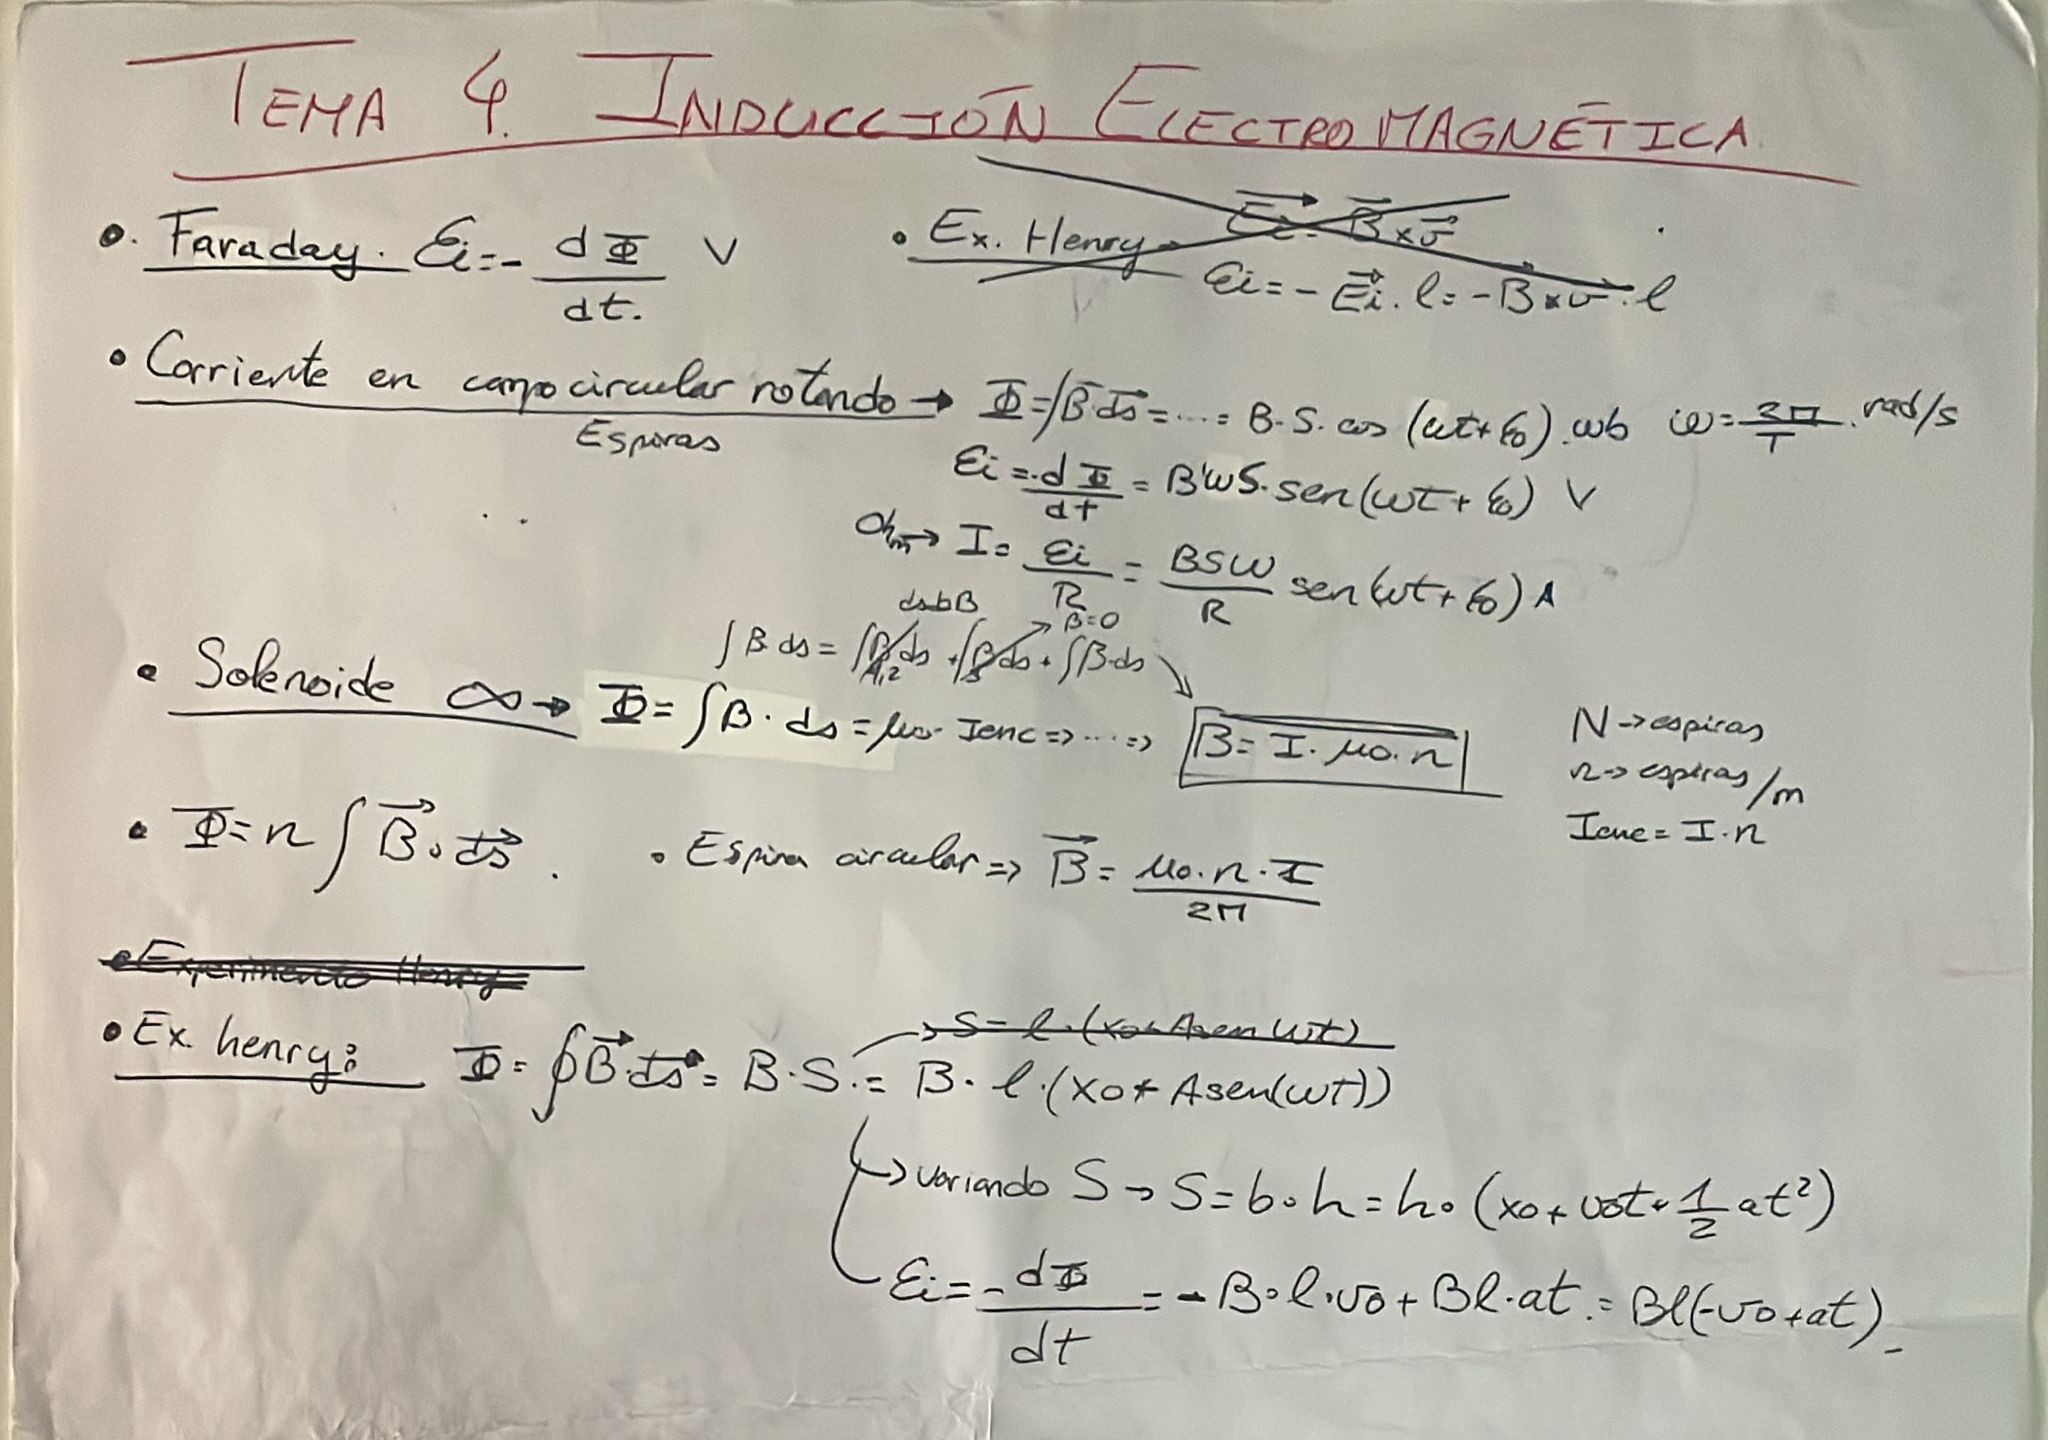 TEMA 4. INDUCCIÓN ELECTROMAGNÉTICA
• Faraday. Ei = - dΦ/dt. V
• Ex. Henry → Ei = B × v
Ei = - Ei · l = - B × v · l
• Corriente en campo circular rotando → Φ = ∫ B · ds = ... = B · S · cos (ωt + φ0) wb ω = 2π/T rad/s
Espiras
Ei = - dΦ/dt = B · ω S · sen (ωt + φ0) V
Ohm → I = Ei/R = BSω/R sen (ωt + φ0) A
ds⊥B B=0
∫ B · ds = ∫1,2 B ds + ∫3 B ds + ∫ B · ds
• Solenoide ∞ → Φ = ∫ B · ds = μ0 · Ienc => ... => B = I · μ0 · n
N → espiras
n → espiras/m
Ienc = I · n
• Φ = n ∫ B · ds .
• Espira circular => B = μ0 · n · I / 2π
• Experimento Henry
• Ex. henry: Φ = ∮ B · ds = B · S = B · l · (x0 + A sen(ωt))
→ S = l · (x0 + A sen ωt)
→ variando S → S = b · h = h · (x0 + v0t + 1/2 at²)
Ei = - dΦ/dt = - B · l · v0 + Bl · at = Bl(-v0 + at)